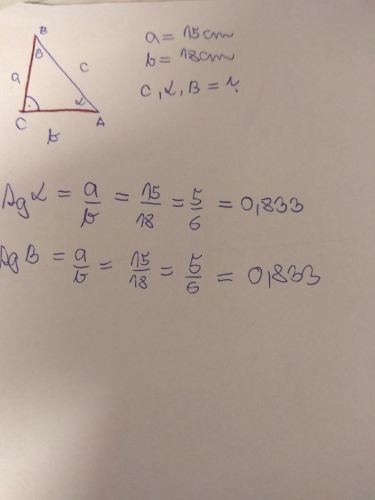 B
β
a
c
α
C
A
b
a = 15cm
b = 18cm
c, α, β = ?
tg α = a/b = 15/18 = 5/6 = 0,833
tg β = a/b = 15/18 = 5/6 = 0,833